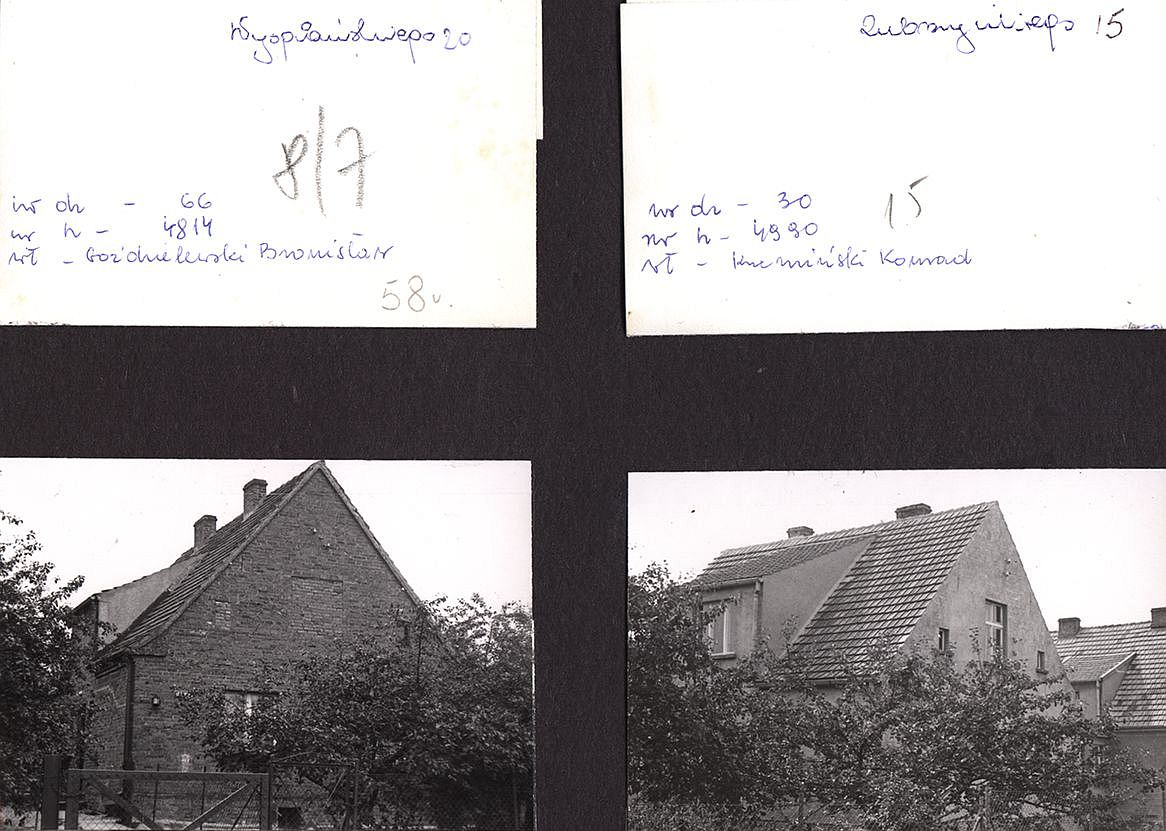 Wyspiańskiego 20
8/7
nr dz - 66
nr h - 4814
wł - Goździelewski Bronisław
58 v.
15
nr dz - 30
15
nr h - 4990
wł - Krzemiński Konrad